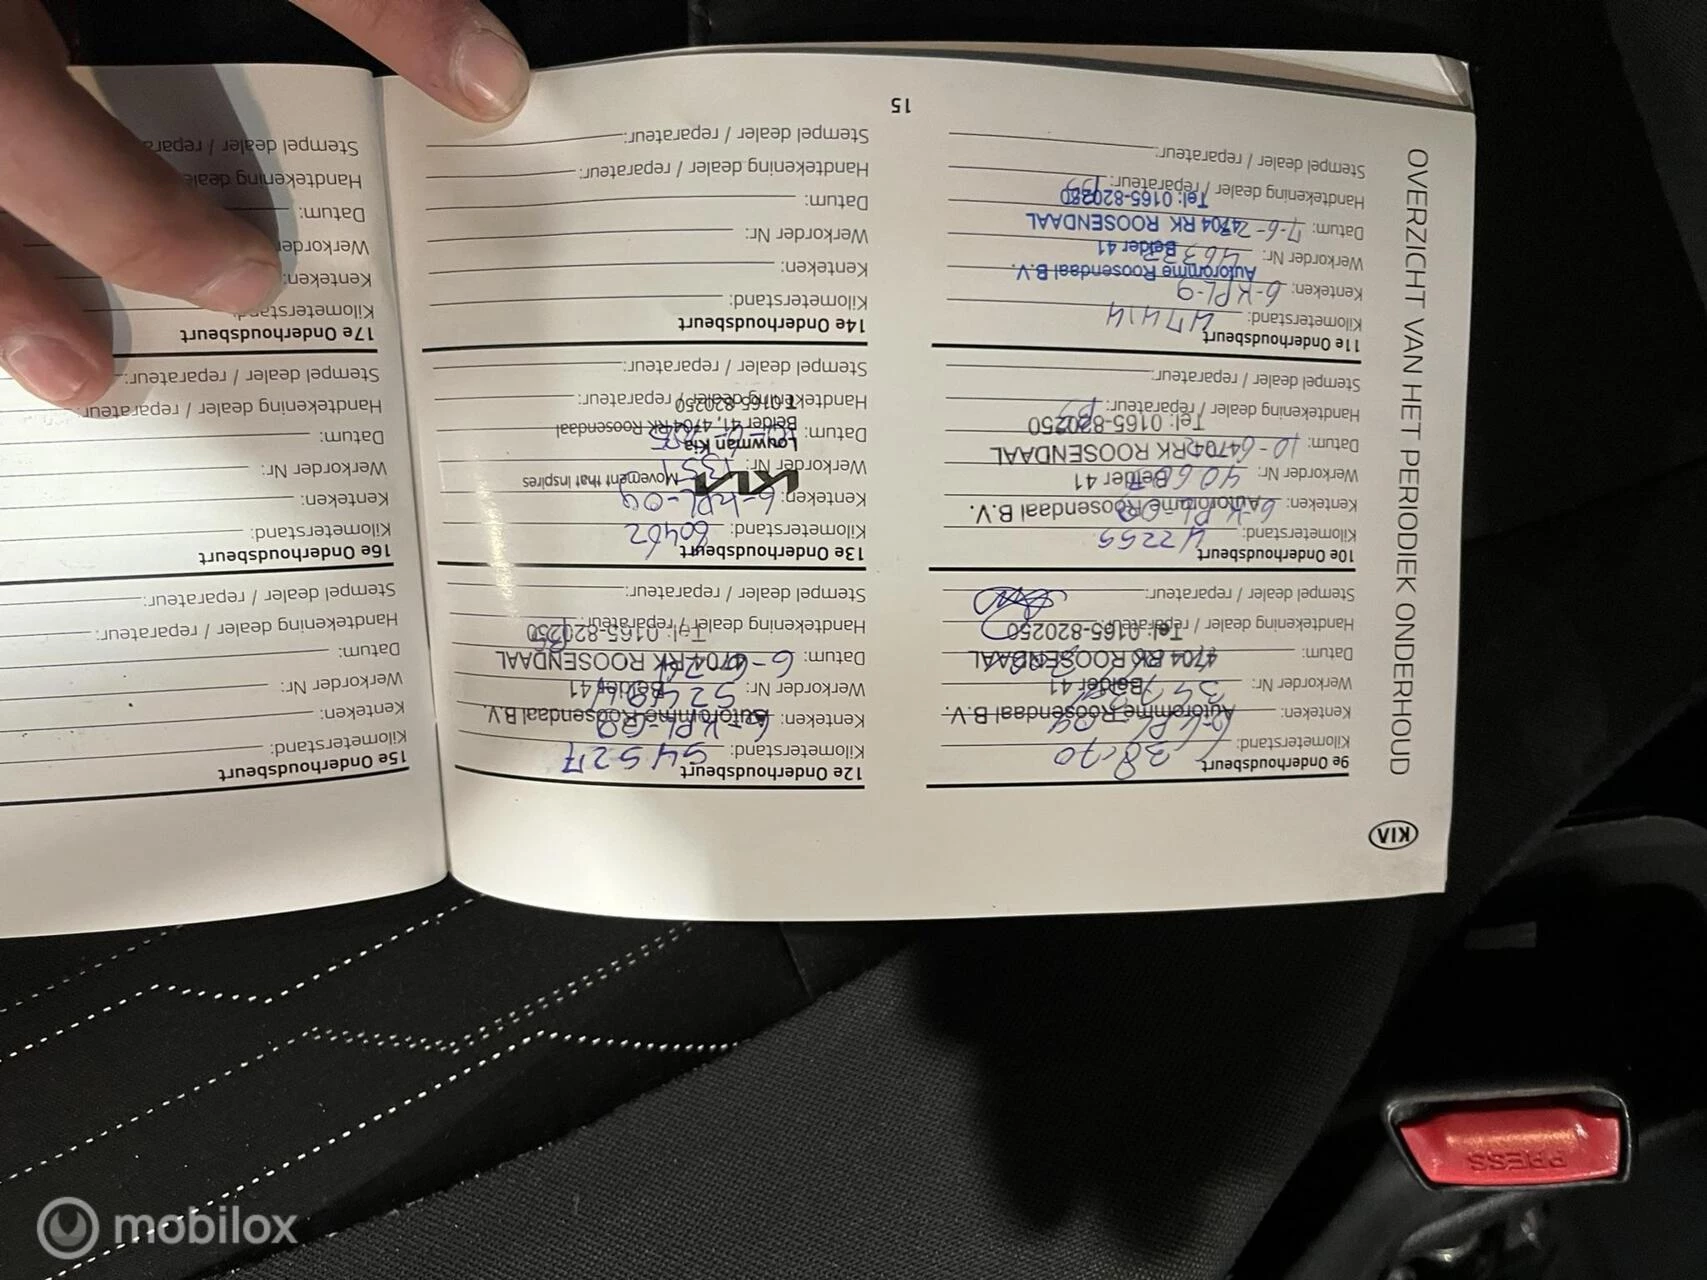 KIA
OVERZICHT VAN HET PERIODIEK ONDERHOUD
9e Onderhoudsbeurt
Kilometerstand:
Kenteken:
Autoromme Roosendaal B.V.
Werkorder Nr:
Belder 41
Datum:
4704 RK ROOSENDAAL
Handtekening dealer / reparateur:
Tel: 0165-820250
Stempel dealer / reparateur:
10e Onderhoudsbeurt
Kilometerstand: 42255
Kenteken:
Autoromme Roosendaal B.V.
Werkorder Nr:
Belder 41
Datum:
4704 RK ROOSENDAAL
Handtekening dealer / reparateur:
Tel: 0165-820250
Stempel dealer / reparateur:
11e Onderhoudsbeurt
Kilometerstand: 47414
Kenteken: 6-KPL-9
Autoromme Roosendaal B.V.
Werkorder Nr:
Belder 41
Datum:
4704 RK ROOSENDAAL
Handtekening dealer / reparateur:
Tel: 0165-820250
Stempel dealer / reparateur:
12e Onderhoudsbeurt
Kilometerstand: 54527
Kenteken:
Autoromme Roosendaal B.V.
Werkorder Nr:
Belder 41
Datum:
4704 RK ROOSENDAAL
Handtekening dealer / reparateur:
Tel: 0165-820250
Stempel dealer / reparateur:
13e Onderhoudsbeurt
Kilometerstand: 60462
Kenteken: 6-KPL-09
KIA Movement that inspires
Werkorder Nr:
Louwman Kia
Datum:
Belder 41, 4704 RK Roosendaal
Handtekening dealer / reparateur:
T 0165-820250
Stempel dealer / reparateur:
14e Onderhoudsbeurt
Kilometerstand:
Kenteken:
Werkorder Nr:
Datum:
Handtekening dealer / reparateur:
Stempel dealer / reparateur:
15
15e Onderhoudsbeurt
Kilometerstand:
Kenteken:
Werkorder Nr:
Datum:
Handtekening dealer / reparateur:
Stempel dealer / reparateur:
16e Onderhoudsbeurt
Kilometerstand:
Kenteken:
Werkorder Nr:
Datum:
Handtekening dealer / reparateur:
Stempel dealer / reparateur:
17e Onderhoudsbeurt
Kilometerstand:
Kenteken:
Werkorder
Datum:
Handtekening dealer
Stempel dealer / reparateur
PRESS
mobilox